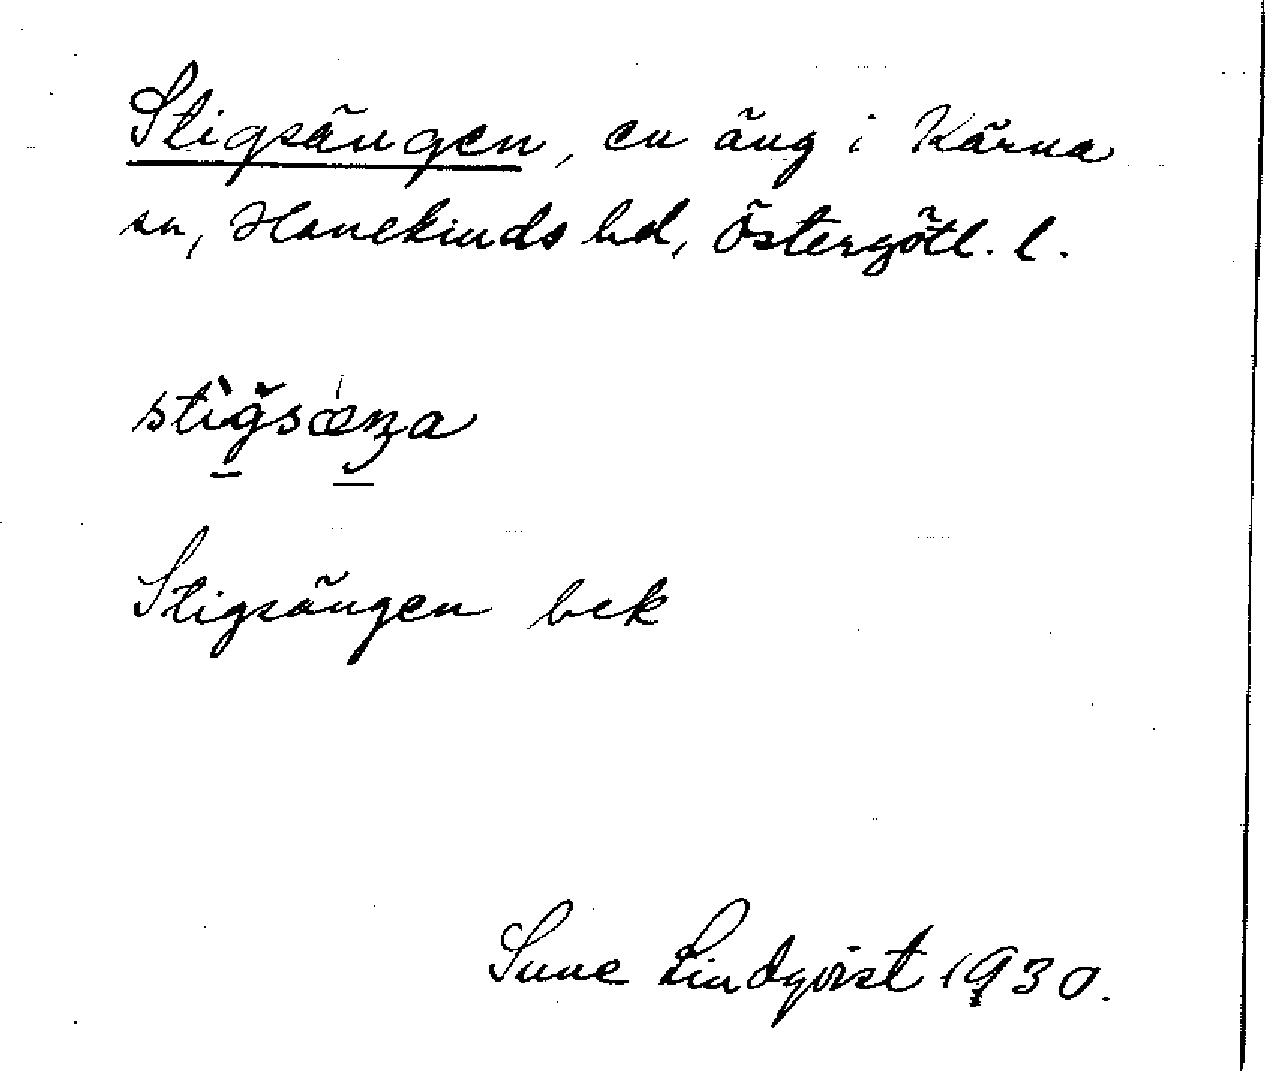 Stigsängen, en äng i Kärna
sn, Hanekinds hd, Östergötl. l.
stìğsæŋa
Stigsängen bek
Sune Lindqvist 1930.